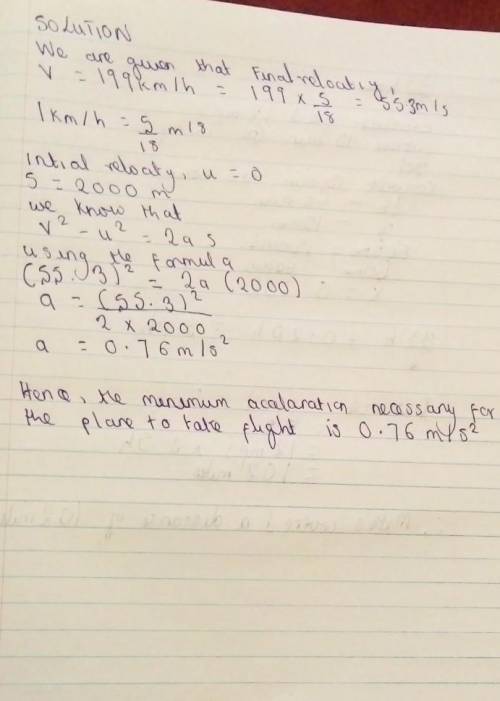 SOLUTION
We are given that Final relocity,
V = 199km/h = 199 × 5/18 = 553m/s
1km/h = 5/18 m/s
Intial relocity, u = 0
S = 2000 m
we know that
V² - u² = 2a s
using the formula
(55.3)² = 2a (2000)
a = (55.3)² / 2 × 2000
a = 0.76m/s²
Hence, the minimum acalaration necessary for
the plane to take flight is 0.76 m/s²